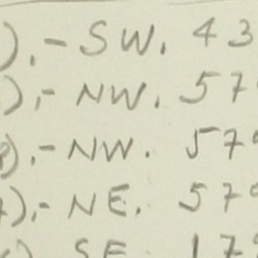 ).- SW. 43
).- NW. 57°
).- NW. 57°
).- NE. 57°
) SE 17°